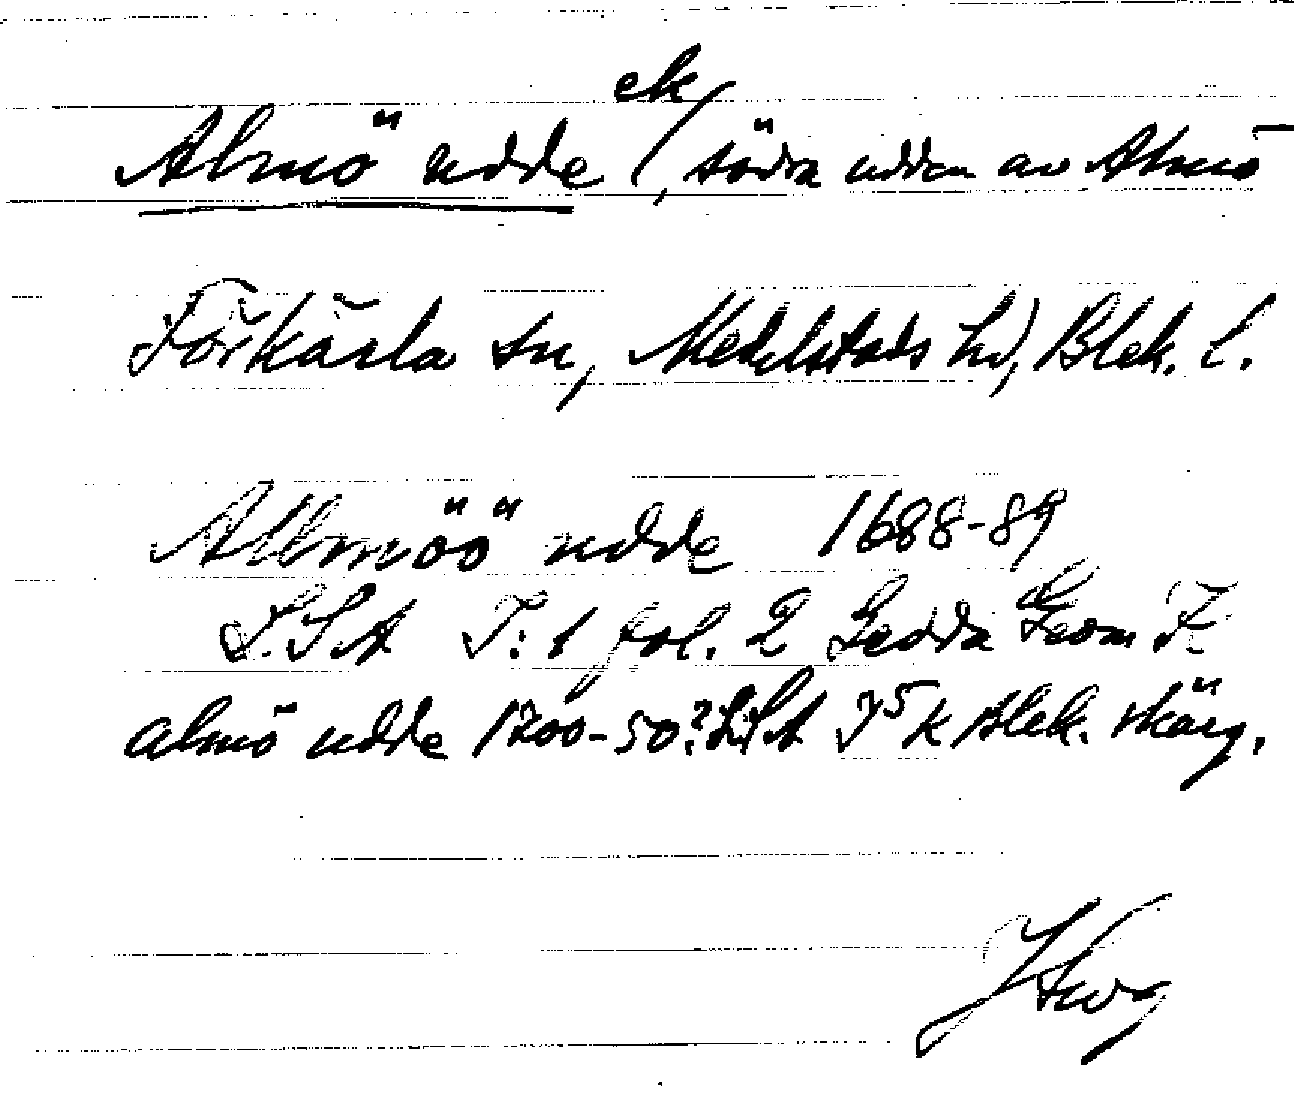 ek
Almö udde /, södra udden av Almö
Förkärla sn, Medelstads hd, Blek. l.
Allmöö udde 1688-89
S.S.A T: 1 fol. 2 Gedda Geom F.
almö udde 1700-50? S.S.A K Blek. skärg.